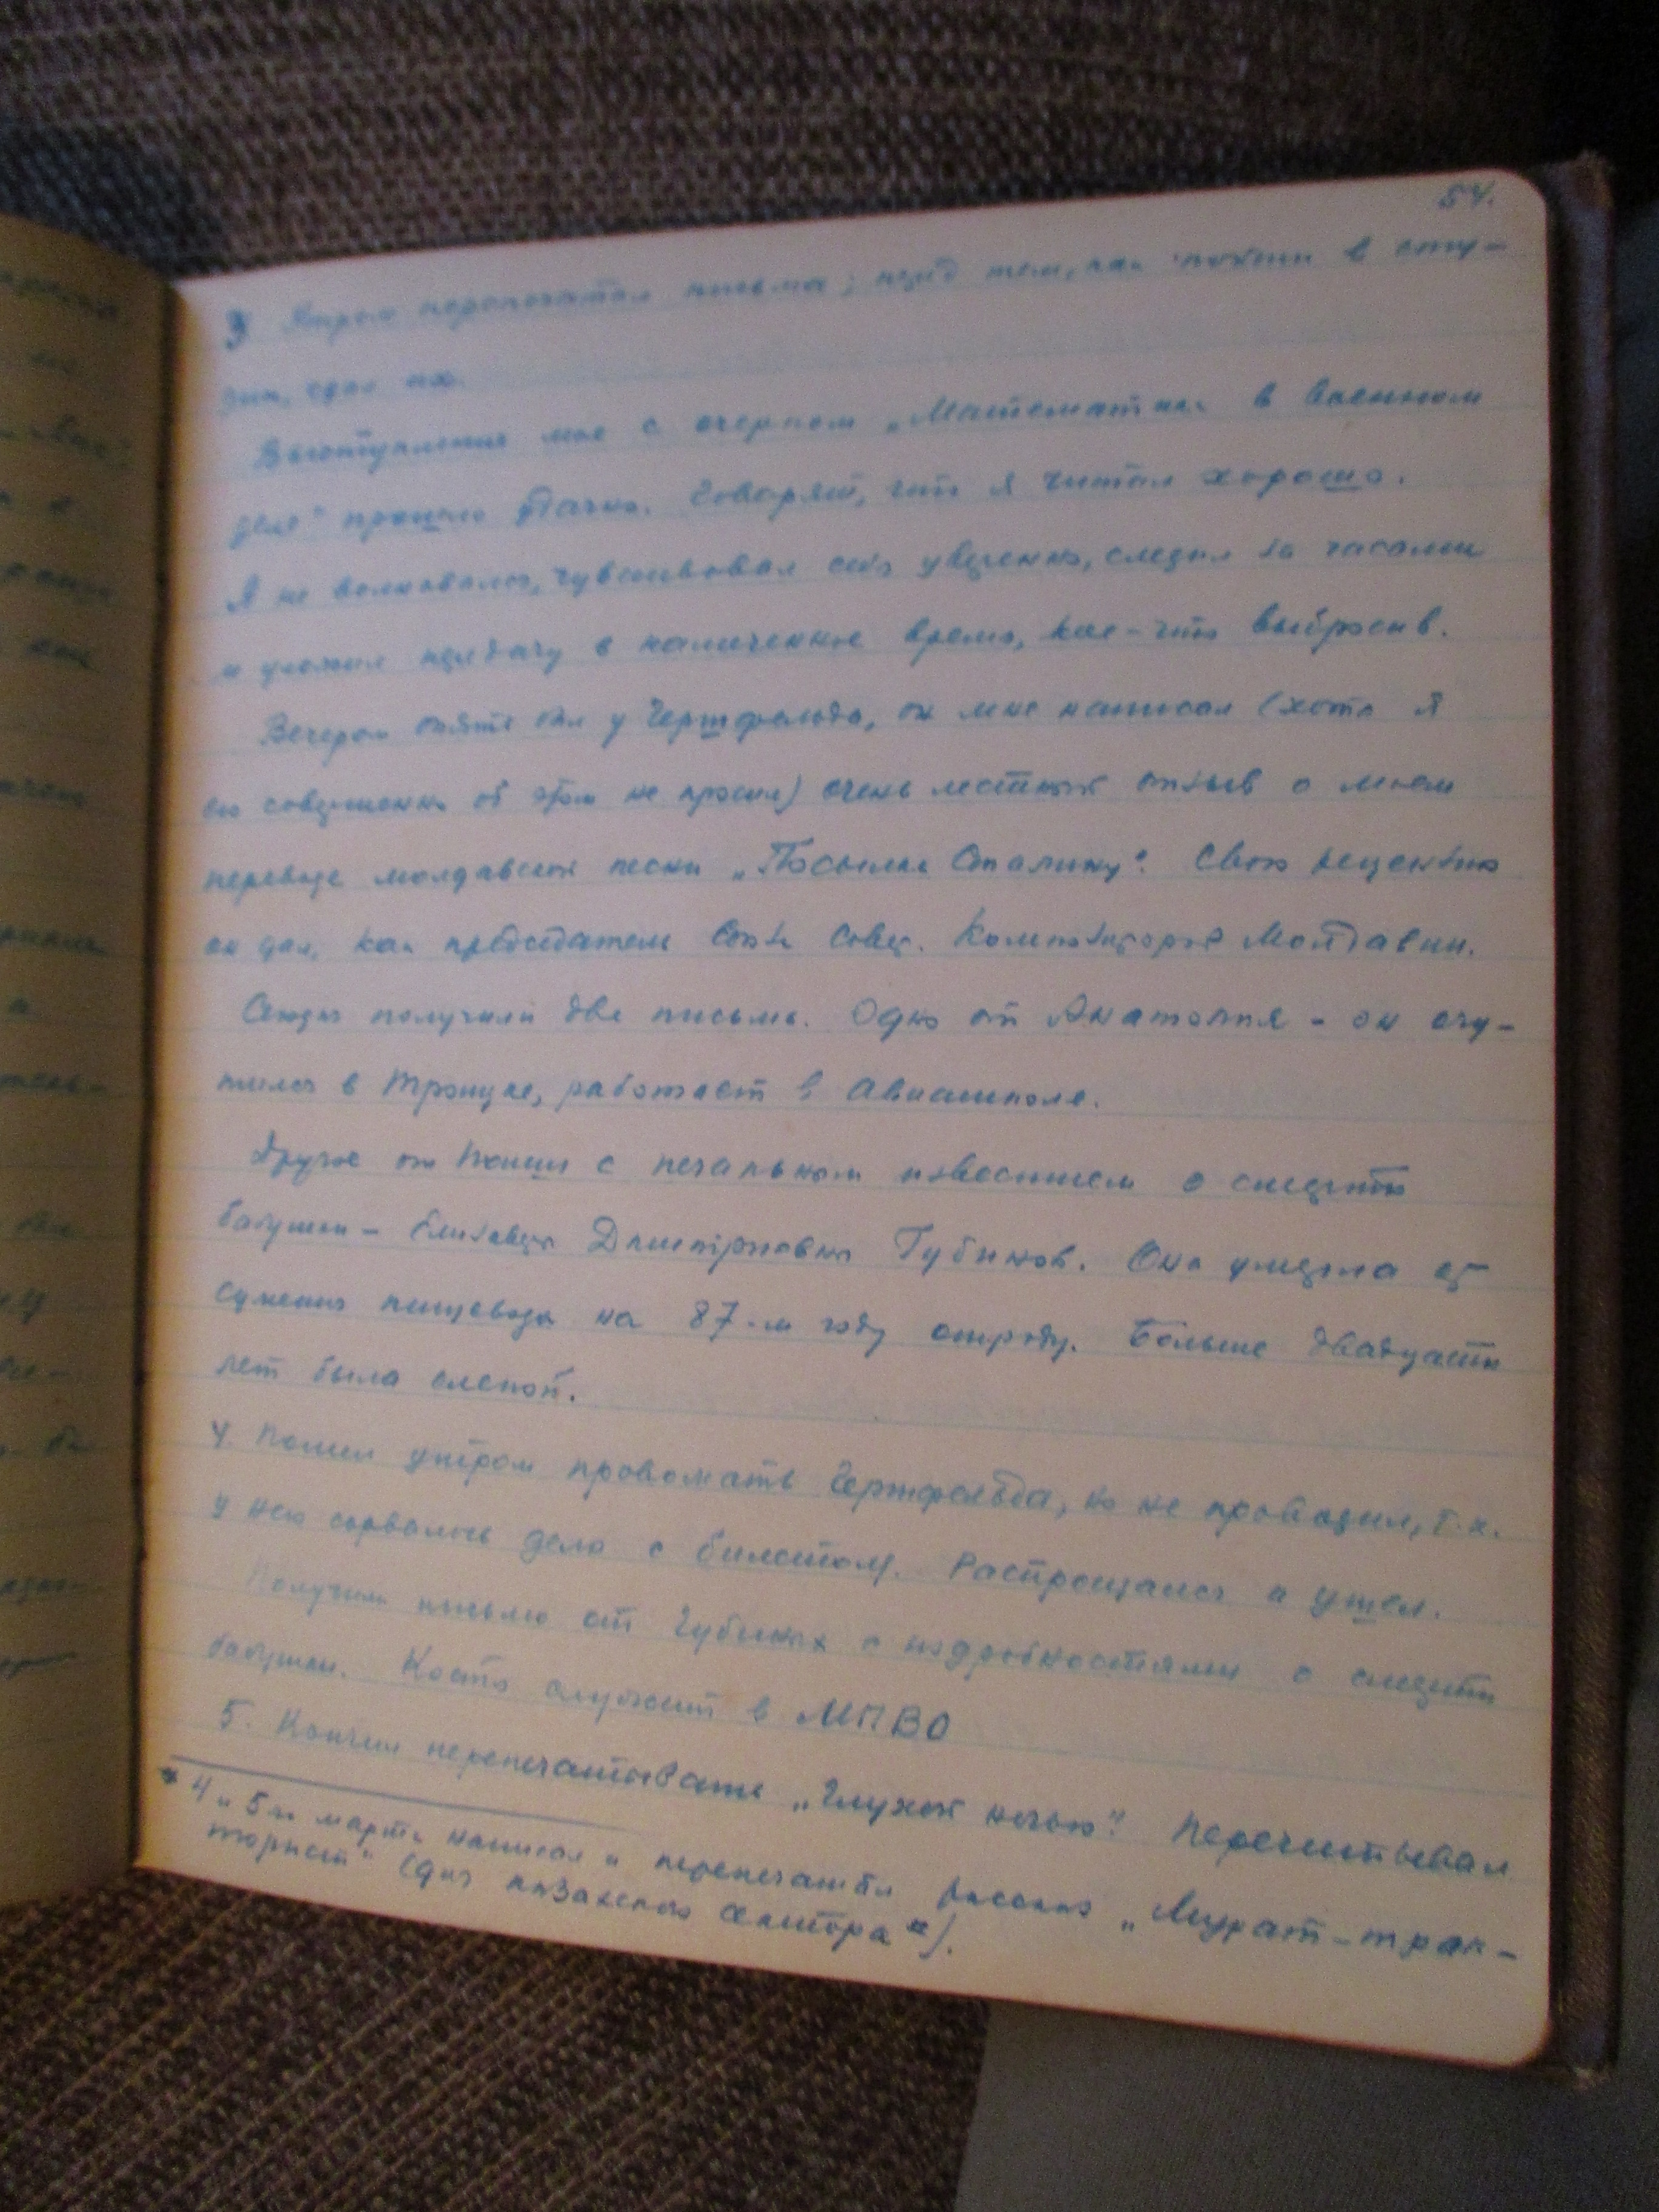 54.
3 Утром перепечатал письма; перед тем, как пойти в сту-
дию, сдал их.
Выступление мое с очерком „Математика в военном
деле" прошло удачно. Говорят, что я читал хорошо.
Я не волновался, чувствовал себя уверенно, следил за часами
и уложил передачу в намеченное время, кое-что выбросив.
Вечером опять был у Гершфельда, он мне написал (хотя я
его совершенно об этом не просил) очень лестный отзыв о моем
переводе молдавской песни „Посылка Сталину". Свою рецензию
он дал, как председатель Союза Совет. Композиторов Молдавии.
Сегодня получили две письма. Одно от Анатолия - он очу-
тился в Троицке, работает в Авиашколе.
Другое от с печальным известием о смерти
бабушки - Елизаветы Дмитриевны Губиной. Она умерла от
сужения пищевода на 87-м году отроду. Больше двадцати
лет была слепой.
4. Пошел утром провожать Гершфельда, но не проводил, т.к.
у него сорвалось дело с билетом. Распрощался и ушел.
Получили письмо от Губиных с подробностями о смерти
бабушки. Костя служит в МПВО
5. Кончил перепечатывать „Глухой ночью". Перечитывал
* 4 и 5го марта написал и перепечатал рассказ „Мурат-трак-
торист" (для казахского сектора*).